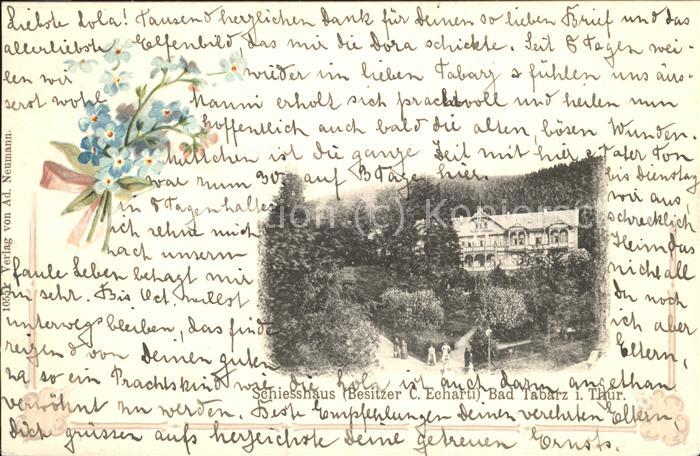 Liebste Lola! Tausend herzlichen Dank für Deinen so lieben Brief und das
allerliebste Elfenbild, das mir die Dora schickte. Seit 8 Tagen wei-
len wir wieder im lieben Tabarz & fühlen uns äus-
serst wohl Hanni erholt sich prachtvoll und heilen nun
hoffentlich auch bald die alten, bösen Wunden.
Muttchen ist die ganze Zeit mit hier & Vater von
war zum 30. auf 3 Tage hier. bis Dienstag
in 8 Tagen halles wir aus,
ich sehne mich schrecklich
nach unserm Heim das
faule Leben behagt mir nicht all
zu sehr. Bis Oct. willst Du noch
unterwegs bleiben, das finde ich aber
reizend von Deinen guten Eltern,
na so ein Prachtskind wie die Lola ist auch dazu angethan
verwöhnt zu werden. Beste Empfehlungen Deinen verehrten Eltern,
Dich grüssen aufs herzlichste Deine getreuen Ernsts.
Schiesshaus (Besitzer C. Echarti) Bad Tabarz i. Thür.
Verlag von Ad. Neumann.
(c)